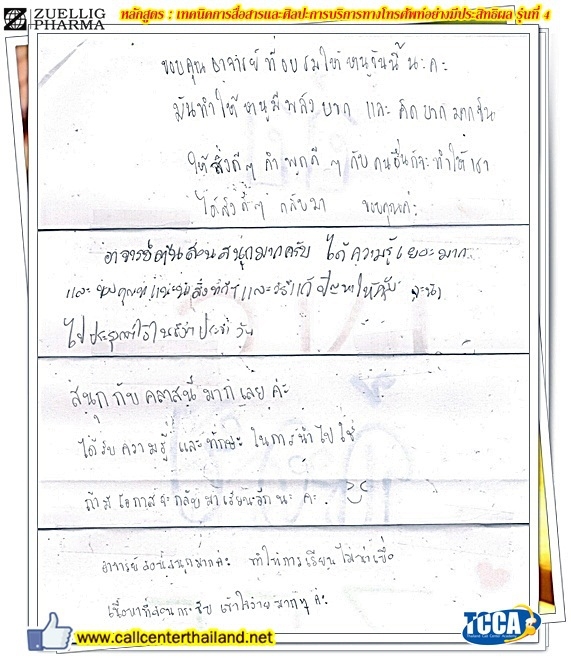 ZUELLIG
PHARMA
หลักสูตร : เทคนิคการสื่อสารและศิลปะการบริการทางโทรศัพท์อย่างมีประสิทธิผล รุ่นที่ 4
ขอบคุณ อาจารย์ ที่อบรมให้หนูวันนี้ นะคะ
มันทำให้ หนูมี พลัง บวก และ คิด บวก มากขึ้น
ให้สิ่งดีๆ คำพูดดี ๆ กับ คนอื่นก็จะทำให้เรา
ได้สิ่งดีๆ กลับมา ขอบคุณค่ะ
อาจารย์ สอนสนุกมากครับ ได้ความรู้เยอะมาก
และ ขอบคุณที่แนะนำสิ่งที่ดี และวิธีแก้ปัญหาให้กับ จะนำ
ไปประยุกต์ใช้ในชีวิตประจำวัน
สนุกกับคลาสนี้มากเลยค่ะ
ได้รับความรู้ และทักษะ ในการนำไปใช้
ถ้ามีโอกาสจะกลับมาเรียนอีก นะ คะ
อาจารย์สอนสนุกมากค่ะ ทำให้การเรียนไม่น่าเบื่อ
เนื้อหาที่สอนกระชับ เข้าใจง่าย มากๆ ค่ะ
www.callcenterthailand.net
TCCA
Thailand Call Center Academy